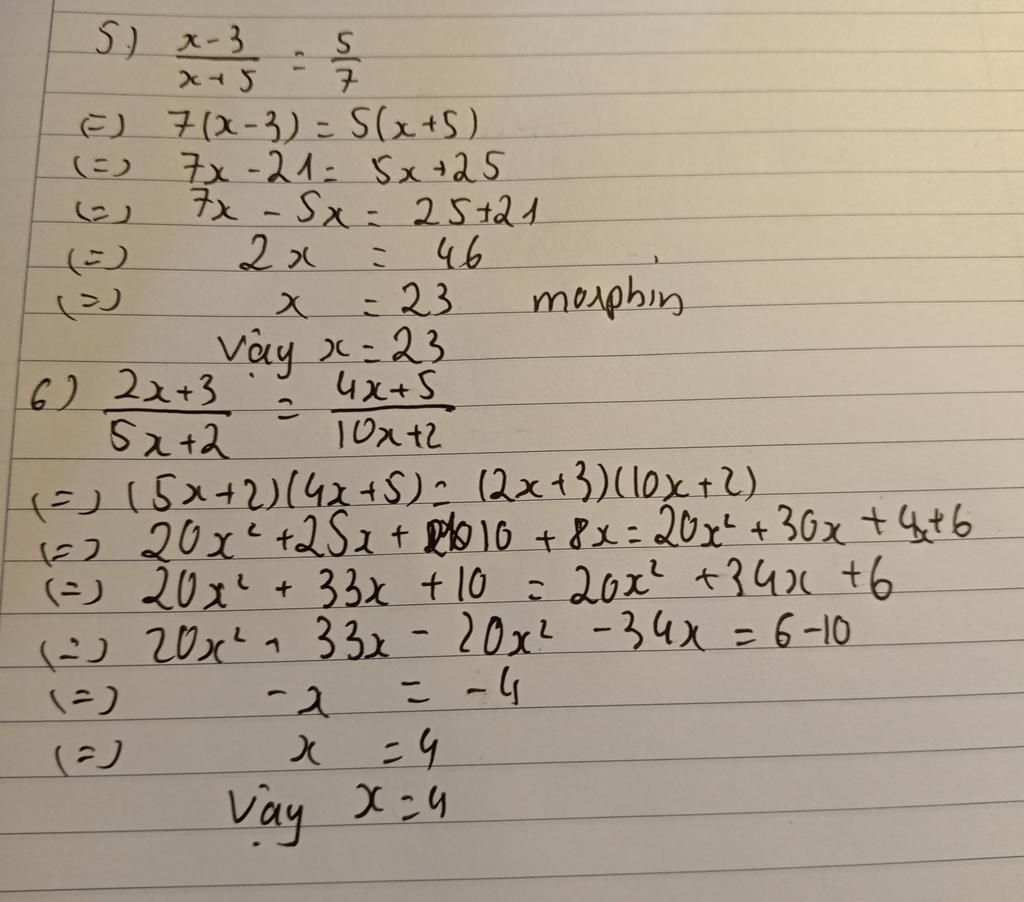 5) \frac{x-3}{x+5} = \frac{5}{7}
(=) 7(x-3) = 5(x+5)
(=) 7x - 21 = 5x + 25
(=) 7x - 5x = 25 + 21
(=) 2x = 46
(=) x = 23 morphin
Vậy x = 23
6) \frac{2x+3}{5x+2} = \frac{4x+5}{10x+2}
(=) (5x+2)(4x+5) = (2x+3)(10x+2)
(=) 20x² + 25x + 10 + 8x = 20x² + 30x + 4x + 6
(=) 20x² + 33x + 10 = 20x² + 34x + 6
(=) 20x² + 33x - 20x² - 34x = 6 - 10
(=) -x = -4
(=) x = 4
Vậy x = 4